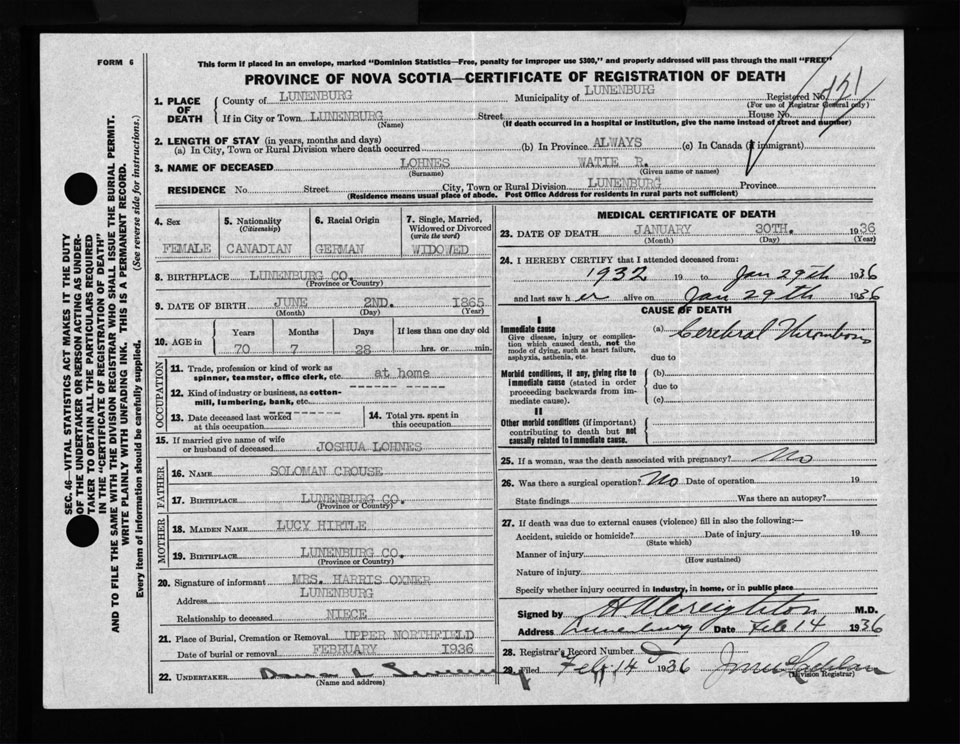 FORM 6
This form if placed in an envelope, marked "Dominion Statistics—Free, penalty for improper use $300," and properly addressed will pass through the mail "FREE"
PROVINCE OF NOVA SCOTIA—CERTIFICATE OF REGISTRATION OF DEATH
1. PLACE OF DEATH
County of LUNENBURG Municipality of LUNENBURG Registered No. 121
(For use of Registrar General only)
If in City or Town LUNENBURG Street House No.
(Name) (If death occurred in a hospital or institution, give the name instead of street and number)
2. LENGTH OF STAY (in years, months and days)
(a) In City, Town or Rural Division where death occurred (b) In Province ALWAYS (c) In Canada (if immigrant)
3. NAME OF DECEASED LOHNES WATIE R.
(Surname) (Given name or names)
RESIDENCE No Street City, Town or Rural Division LUNENBURG Province
(Residence means usual place of abode. Post Office Address for residents in rural parts not sufficient)
4. Sex 5. Nationality (Citizenship) 6. Racial Origin 7. Single, Married, Widowed or Divorced (write the word)
FEMALE CANADIAN GERMAN WIDOWED
8. BIRTHPLACE LUNENBURG CO.
(Province or Country)
9. DATE OF BIRTH JUNE 2ND. 1865
(Month) (Day) (Year)
10. AGE in Years Months Days If less than one day old
70 7 28 hrs. or min.
OCCUPATION
11. Trade, profession or kind of work as spinner, teamster, office clerk, etc. at home
12. Kind of industry or business, as cotton-mill, lumbering, bank, etc.
13. Date deceased last worked at this occupation
14. Total yrs. spent in this occupation
15. If married give name of wife or husband of deceased JOSHUA LOHNES
FATHER
16. NAME SOLOMAN CROUSE
17. BIRTHPLACE LUNENBURG CO.
(Province or Country)
MOTHER
18. MAIDEN NAME LUCY HIRTLE
19. BIRTHPLACE LUNENBURG CO.
(Province or Country)
20. Signature of informant MRS. HARRIS OXNER
Address LUNENBURG
Relationship to deceased NIECE
21. Place of Burial, Cremation or Removal UPPER NORTHFIELD
Date of burial or removal FEBRUARY 1936
22. UNDERTAKER
(Name and address)
MEDICAL CERTIFICATE OF DEATH
23. DATE OF DEATH JANUARY 30TH. 1936
(Month) (Day) (Year)
24. I HEREBY CERTIFY that I attended deceased from:
1932 19 to Jan 29th 1936
and last saw her alive on Jan 29th 1936
CAUSE OF DEATH
I
Immediate cause
Give disease, injury or complication which caused death, not the mode of dying, such as heart failure, asphyxia, asthenia, etc
(a) Cerebral Thrombosis
due to
Morbid conditions, if any, giving rise to immediate cause (stated in order proceeding backwards from immediate cause).
(b)
due to
(c)
II
Other morbid conditions (if important) contributing to death but not causally related to immediate cause.
25. If a woman, was the death associated with pregnancy? No
26. Was there a surgical operation? No Date of operation 19
State findings Was there an autopsy?
27. If death was due to external causes (violence) fill in also the following:—
Accident, suicide or homicide? Date of injury 19
(State which)
Manner of injury
(How sustained)
Nature of injury
Specify whether injury occurred in industry, in home, or in public place
Signed by H A Creighton M.D.
Address Lunenburg Date Feb 14 1936
28. Registrar's Record Number
29. Filed Feb 14 1936
(Division Registrar)
SEC. 46—VITAL STATISTICS ACT MAKES IT THE DUTY
OF THE UNDERTAKER OR PERSON ACTING AS UNDER-
TAKER TO OBTAIN ALL THE PARTICULARS REQUIRED
IN THE "CERTIFICATE OF REGISTRATION OF DEATH"
AND TO FILE THE SAME WITH THE DIVISION REGISTRAR WHO SHALL ISSUE THE BURIAL PERMIT.
WRITE PLAINLY WITH UNFADING INK. THIS IS A PERMANENT RECORD.
Every item of information should be carefully supplied. (See reverse side for instructions.)